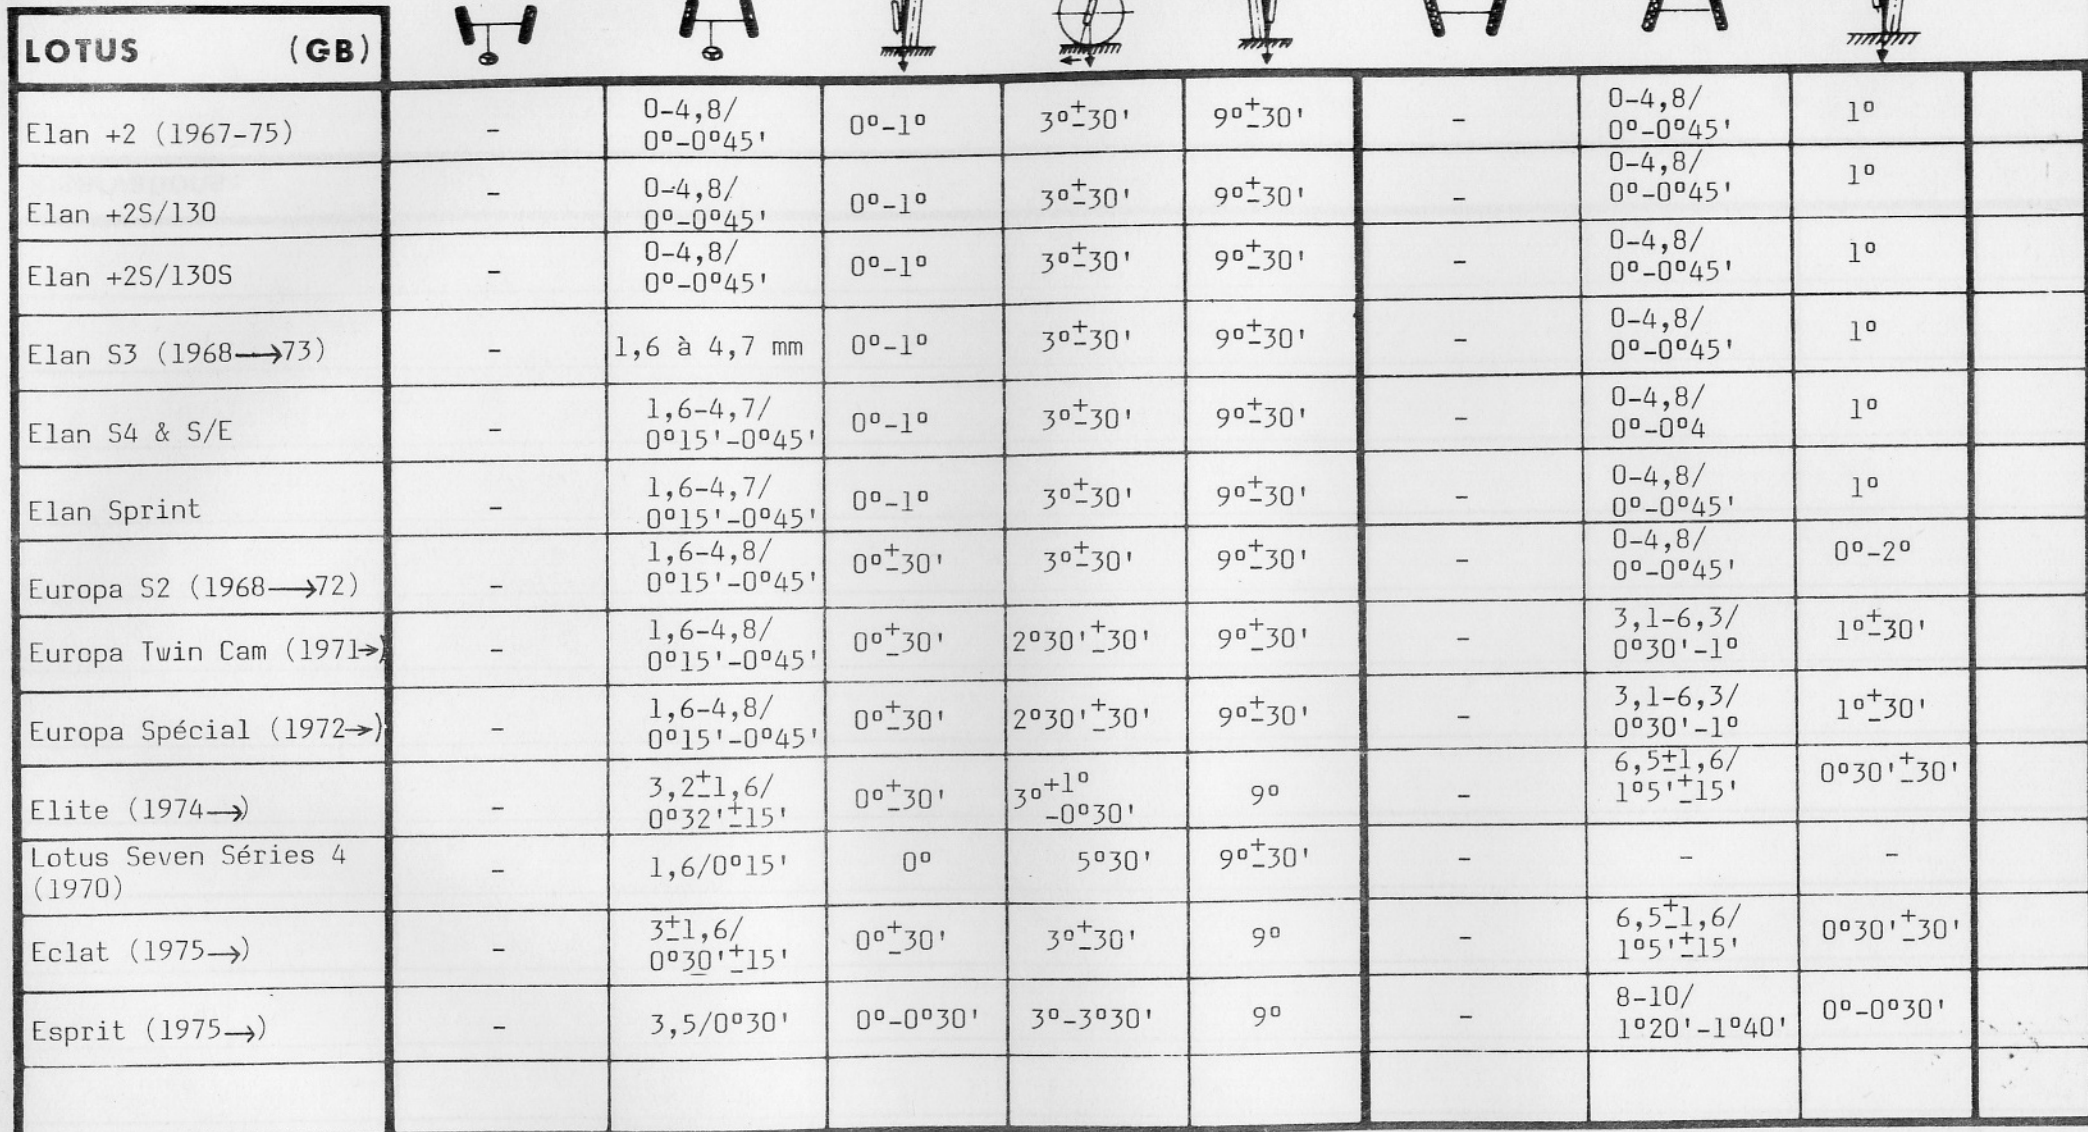 LOTUS (GB)
Elan +2 (1967-75) - 0-4,8/ 0º-0º45' 0º-1º 3º±30' 9º±30' - 0-4,8/ 0º-0º45' 1º
Elan +2S/130 - 0-4,8/ 0º-0º45' 0º-1º 3º±30' 9º±30' - 0-4,8/ 0º-0º45' 1º
Elan +2S/130S - 0-4,8/ 0º-0º45' 0º-1º 3º±30' 9º±30' - 0-4,8/ 0º-0º45' 1º
Elan S3 (1968→73) - 1,6 à 4,7 mm 0º-1º 3º±30' 9º±30' - 0-4,8/ 0º-0º45' 1º
Elan S4 & S/E - 1,6-4,7/ 0º15'-0º45' 0º-1º 3º±30' 9º±30' - 0-4,8/ 0º-0º4 1º
Elan Sprint - 1,6-4,7/ 0º15'-0º45' 0º-1º 3º±30' 9º±30' - 0-4,8/ 0º-0º45' 1º
Europa S2 (1968→72) - 1,6-4,8/ 0º15'-0º45' 0º±30' 3º±30' 9º±30' - 0-4,8/ 0º-0º45' 0º-2º
Europa Twin Cam (1971→) - 1,6-4,8/ 0º15'-0º45' 0º±30' 2º30'±30' 9º±30' - 3,1-6,3/ 0º30'-1º 1º±30'
Europa Spécial (1972→) - 1,6-4,8/ 0º15'-0º45' 0º±30' 2º30'±30' 9º±30' - 3,1-6,3/ 0º30'-1º 1º±30'
Elite (1974→) - 3,2±1,6/ 0º32'±15' 0º±30' 3º+1º -0º30' 9º - 6,5±1,6/ 1º5'±15' 0º30'±30'
Lotus Seven Séries 4
(1970) - 1,6/0º15' 0º 5º30' 9º±30' - - -
Eclat (1975→) - 3±1,6/ 0º30'±15' 0º±30' 3º±30' 9º - 6,5±1,6/ 1º5'±15' 0º30'±30'
Esprit (1975→) - 3,5/0º30' 0º-0º30' 3º-3º30' 9º - 8-10/ 1º20'-1º40' 0º-0º30'